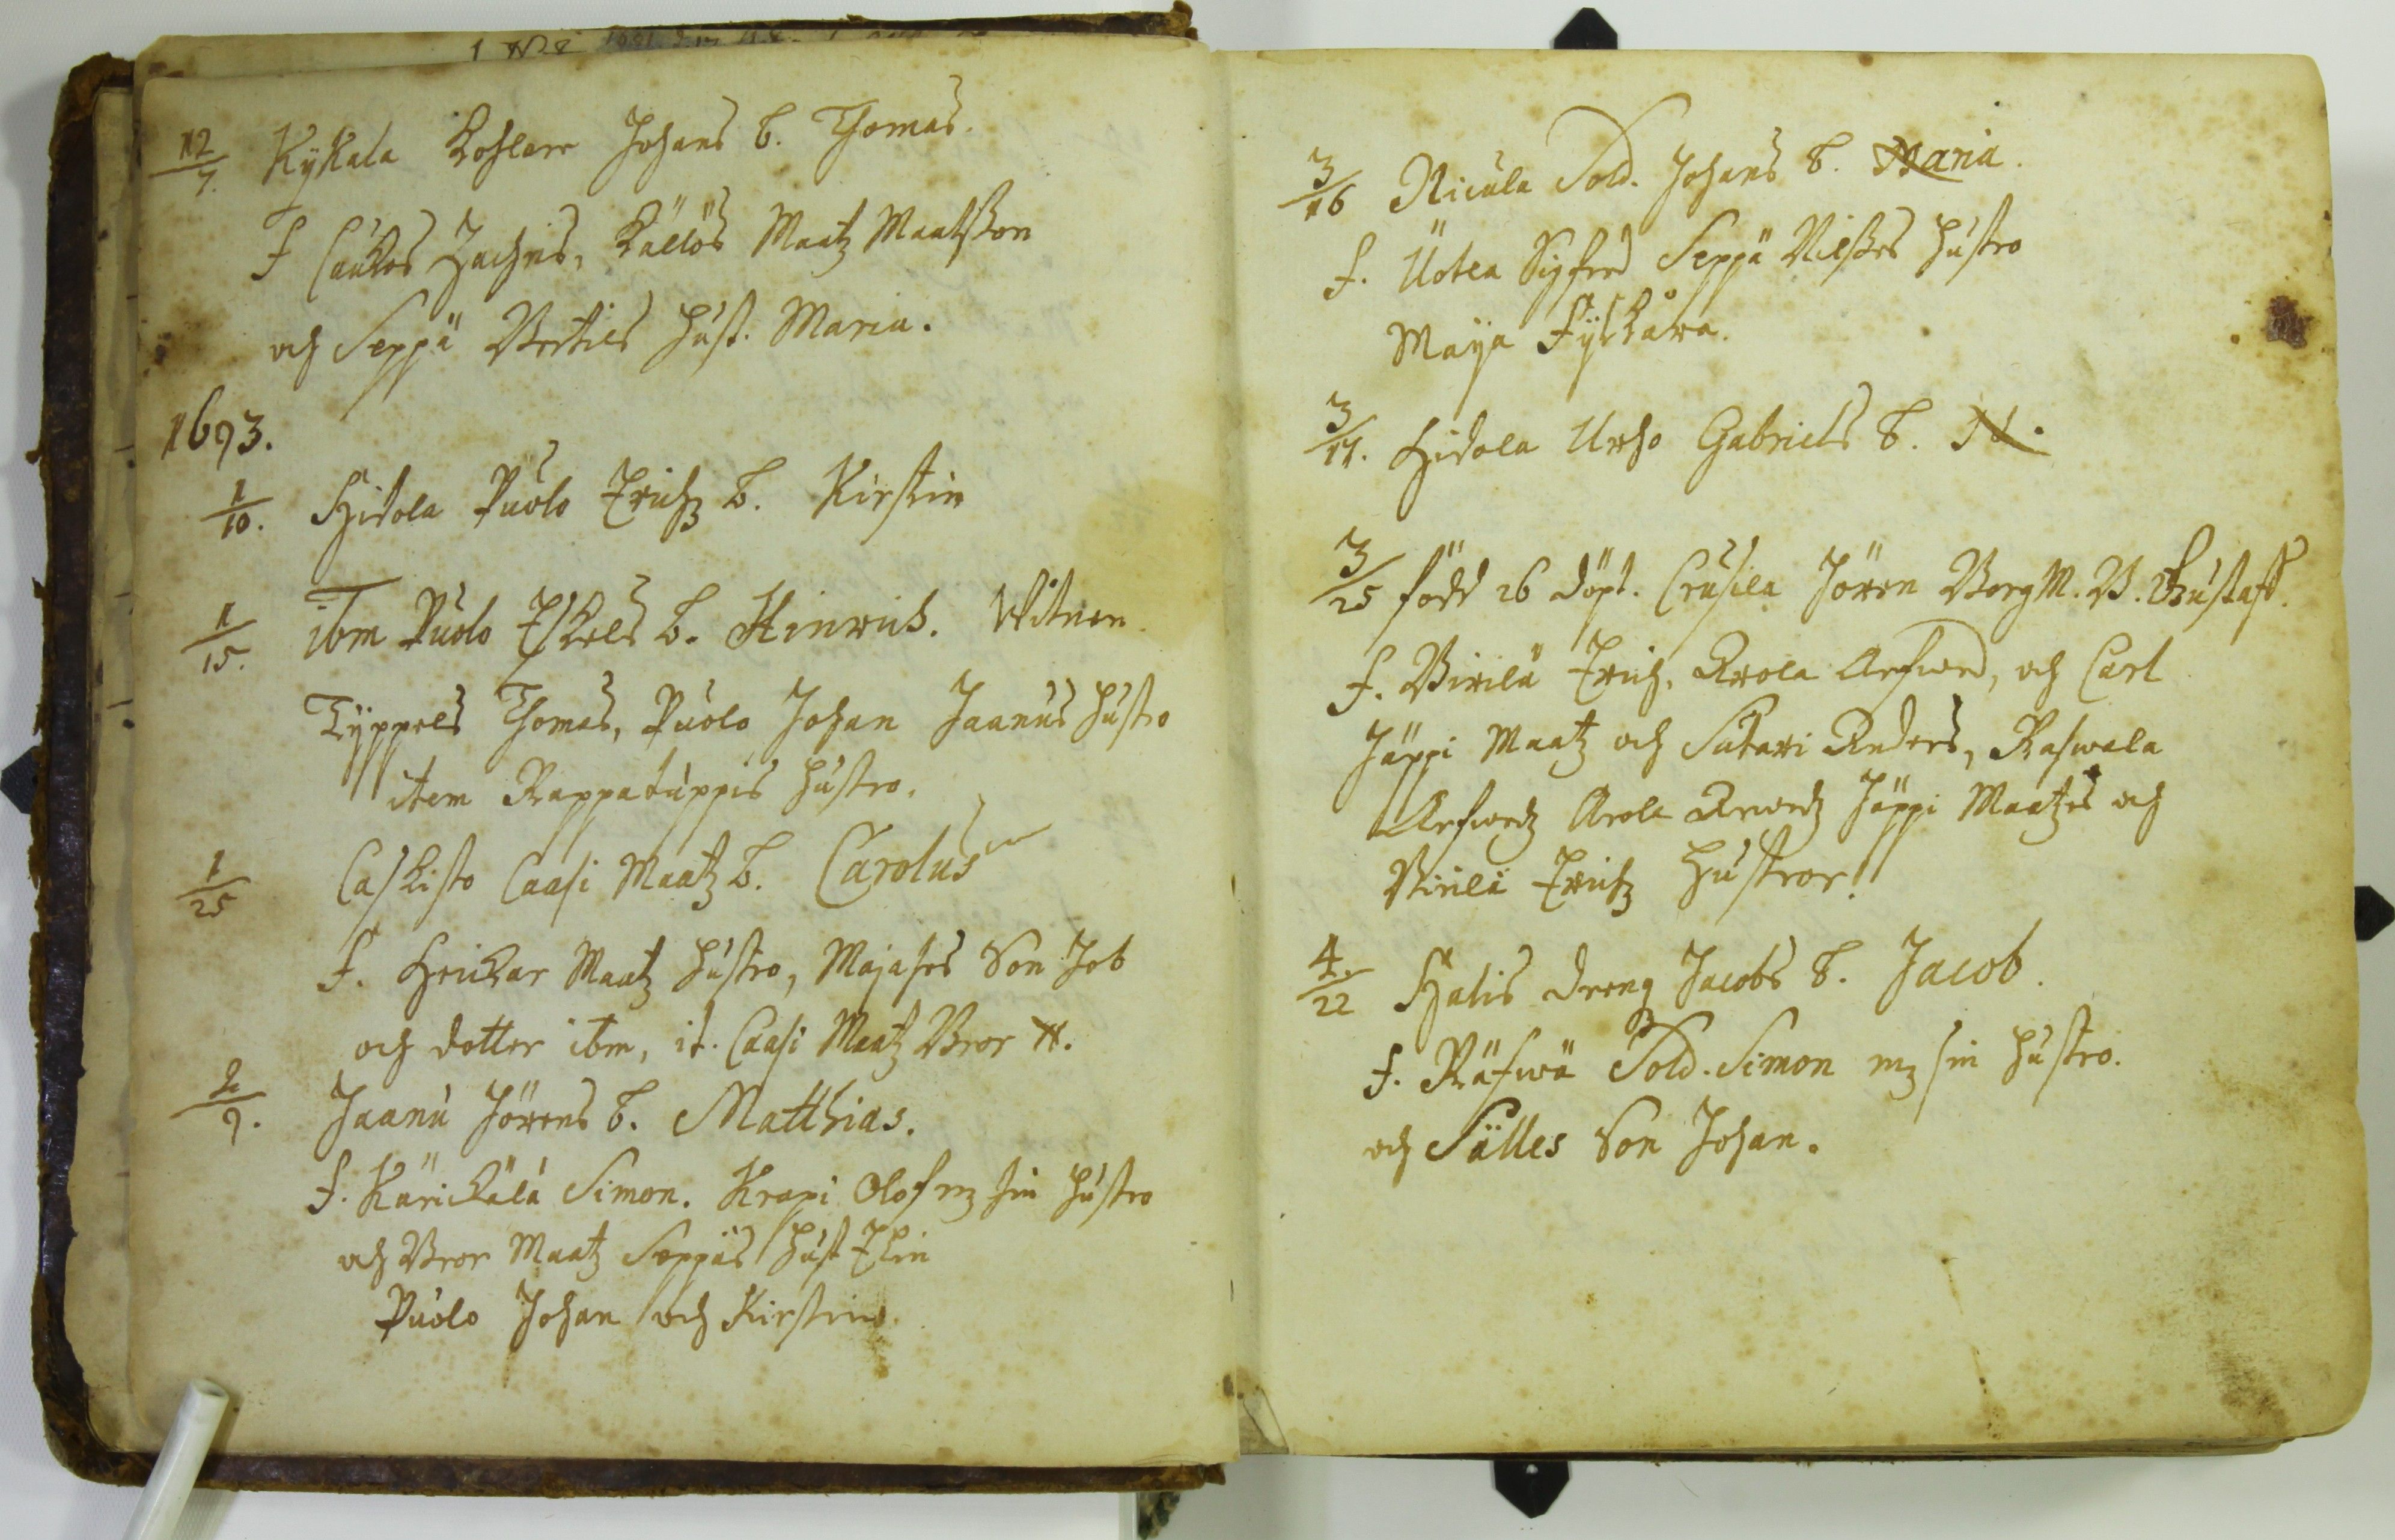 12/7. Kykala Kohlarr Johans b. Thomas.
F Caukos Zachris, Källös Maatz Maatsson
och Seppä Bertils hust. Maria.
1693.
1/10. Hidola Puolo Erichz b. Kirstin
1/15. ibm Puolo Eskels b. Hinrich. Witnen
Typpels Thomas, Puolo Johan Jaanus hustro
item Rappatuppis hustro.
1/25 Caskisto Caasi Maatz b. Carolus
F. Heickar Maatz hustro, Majases Son Job
och dotter ibm, it. Caasi Maatz Bror N.
2/9. Jaanu Jörens b. Matthias.
F. Kärickälä Simon. Krapi Olof mz sin hustro
och Bror Maatz Seppäs hust Elin
Puolo Johan och Kirstin.
3/16 Nicula Sold. Johans b. Maria.
F. Uotea Sigfred Seppä Nilsses hustro
Maija Fyskära.
3/17. Hidola Urho Gabriels b. N.
3/25 född 26 döpt. Crusila Jören Borgm. B. Gustaff.
F. Virilä Erich, Arola Arfwed, och Carl
Jäppi Maatz och Sutari Anders, Raswala
Arfwedz Arola Arwedz Jäppi Maatzes och
Virilä Erichz hustror.
4/22 Halis dreng Jacobs b. Jacob.
F. Räfwä Sold. Simon mz sin hustro.
och Sälles Son Johan.